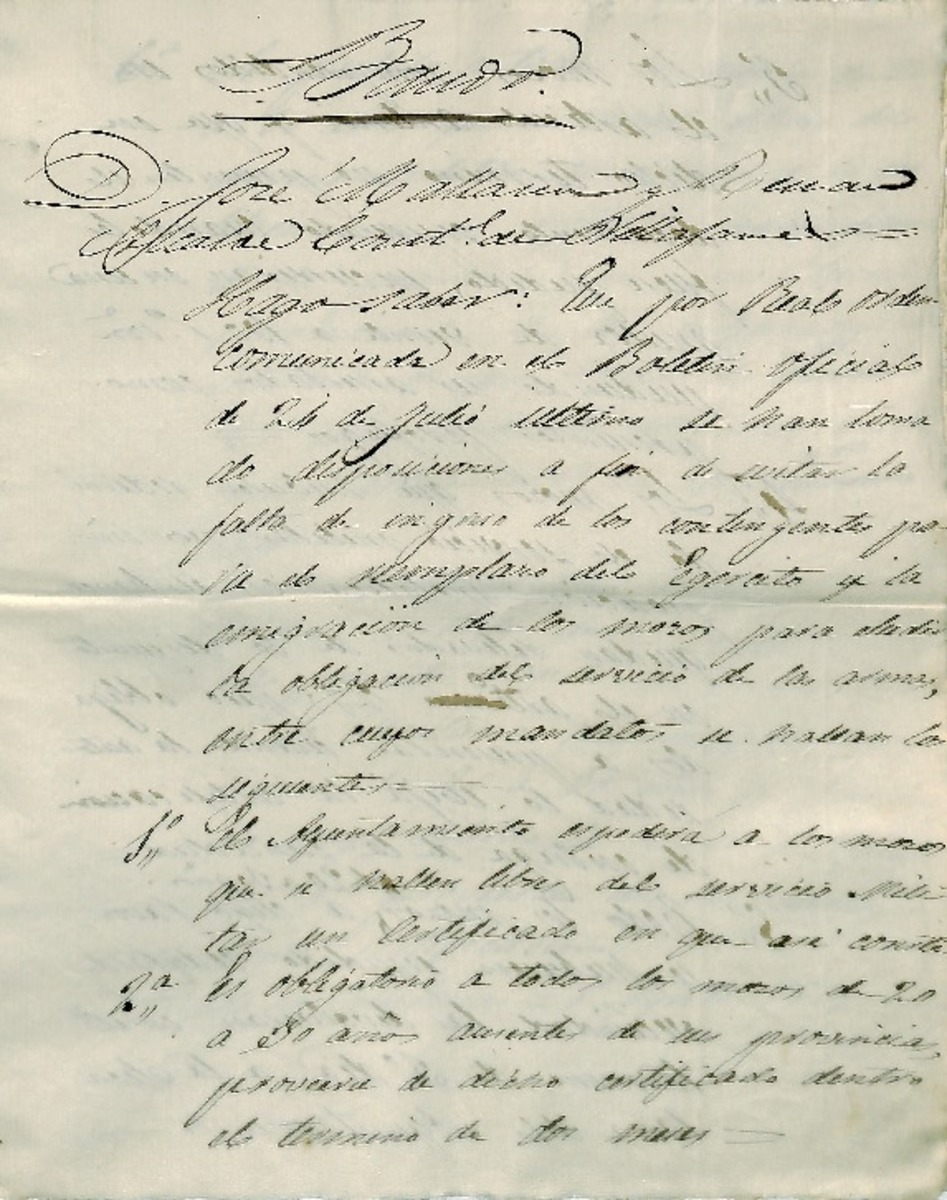 Bando.
D. José Mallasen y
Alcalde Const.l de Villafamés
Hago saber: Que por Real orden
comunicada en el Boletin oficial
de 24 de Julio ultimo se han toma
do disposiciones a fin de evitar la
falta de ingreso de los contingentes pa-
ra el reemplazo del Egercito y la
emigracion de los mozos para eludir
la obligacion del servicio de las armas,
entre cuyos mandatos se hallan los
siguientes =
1.º El Ayuntamiento espedirá a los mozos
que se hallen libres del servicio Mili-
tar un Certificado en que asi conste
2.ª Es obligatorio a todos los mozos de 20
a 30 años ausentes de su provincia,
proveerse de dicho certificado dentro
el termino de dos meses —